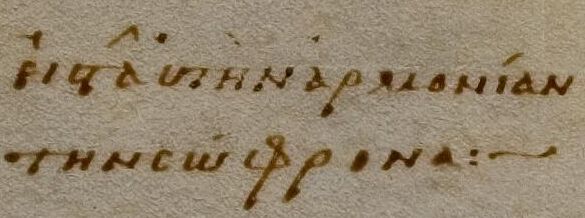 εἰς τ̂ αὐτὴν ἁρμονίαν
τὴν σώφρονα:~